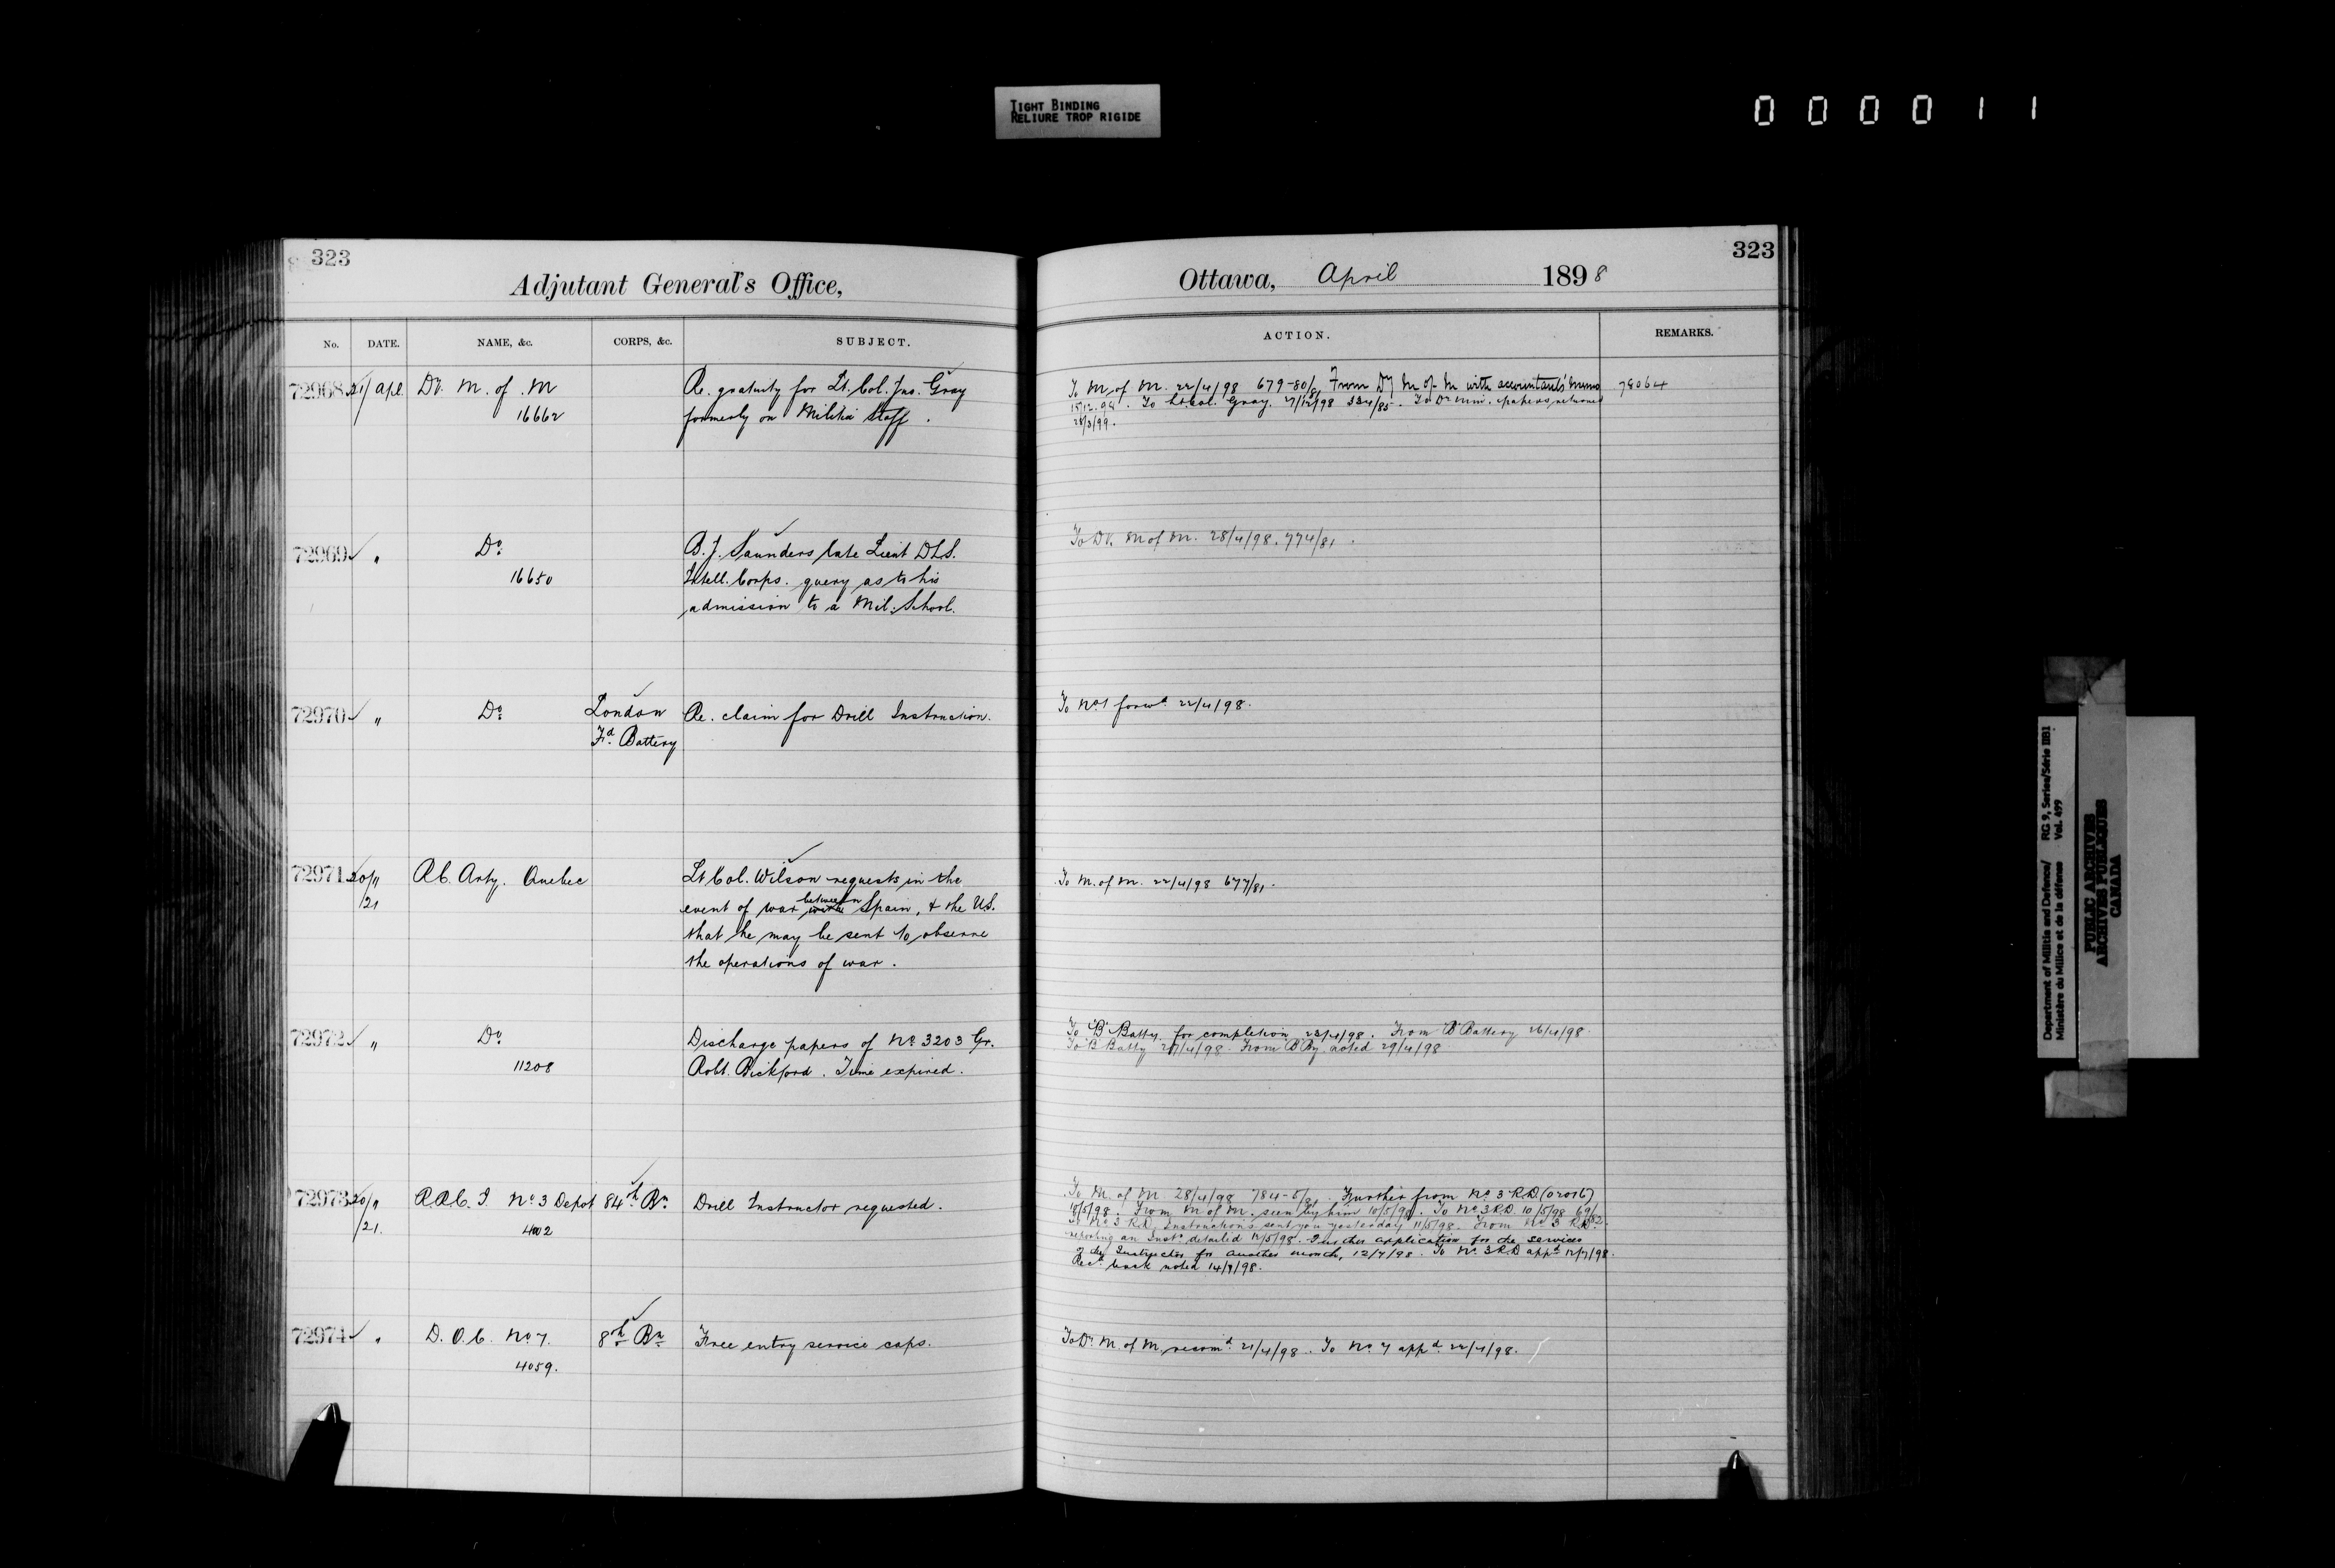 TIGHT BINDING
RELIURE TROP RIGIDE
0 0 0 0 1 1
323
Adjutant General's Office,
No. DATE. NAME, &c. CORPS, &c. SUBJECT.
72968 21/ Apl. Dy. M. of M Re. gratuity for Lt. Col. Jno. Gray
16662 formerly on Militia Staff.
72969 " Do. B. J. Saunders late Lieut D.L.S.
16650 Intell. Corps. query as to his
admission to a Mil: School.
72970 " Do. London Re. claim for Drill Instruction.
Fd. Battery
72971 20/" R.C. Arty. Quebec Lt Col. Wilson requests in the
/21 event of war between Spain, & the U.S.
that he may be sent to observe
the operations of war.
72972 " Do. Discharge papers of No. 3203 Gr.
11208 Robt. Bickford. Time expired.
72973 20/" R.R.C.I. No. 3 Depot 84th Bn. Drill Instructor requested.
/21. 4002
72974 " D.O.C. No 7. 8th Bn. Free entry service caps.
4059.
323
Ottawa, April 1898
ACTION. REMARKS.
To M. of M. 22/4/98 679-80/81 From Dy M of M with accountants' memo 78064
15/12.98. To Lt Col. Gray. 7/12/98 334/85. To Dr Min. papers returned
28/3/99.
To Dy. M of M. 28/4/98. 774/81.
To No 1 forwd. 22/4/98.
To M. of M. 22/4/98 677/81.
To "B" Batty. for completion 23/4/98. From B Battery 26/4/98.
To B Batty 27/4/98. From B By. noted 29/4/98
To M. of M. 28/4/98 784-5/81. Further from No. 3 R.D. (02016)
10/5/98. From M of M. seen by him 10/5/98. To No. 3 R.D. 10/5/98 69/82.
To No 3 R.D. Instructions sent you yesterday 11/5/98. From No 3 R.D.
reporting an Instr. detailed 12/5/98. Further application for the services
of the Instructor for another month, 12/7/98. To No. 3 R.D appd 12/7/98.
Recd. back noted 14/7/98.
To Dy. M. of M. recomd 21/4/98. To No. 7 appd. 22/4/98.
Department of Militia and Defence/ RG 9, Series/Série IIB1
Ministère du Milice et de la défense Vol. 499
PUBLIC ARCHIVES
ARCHIVES PUBLIQUES
CANADA